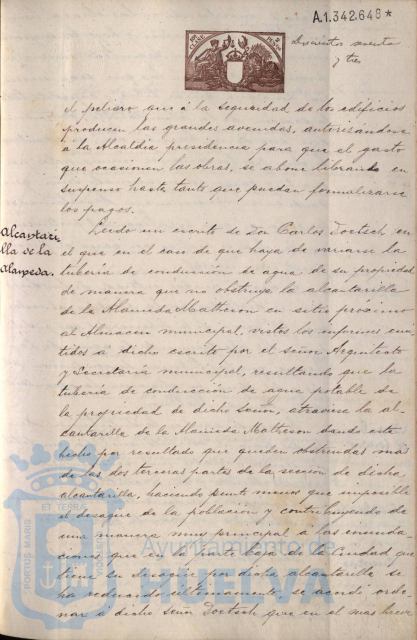 A.1.342.648*
CLASE
Doscientos sesenta
y tres
el peligro que á la seguridad de los edificios
producen las grandes avenidas, autorizándose
á la Alcaldía presidencia para que el gasto
que ocasionen las obras, se abone librando en
suspenso hasta tanto que puedan formalizarse
los pagos.
Alcantari
lla de la
Alameda.
Leido un escrito de Don Carlos Doetsch en
el que en el caso de que haya de variarse la
tubería de conducción de agua de su propiedad
de manera que no obstruya la alcantarilla
de la Alameda Matheson en sitio próximo
al Almacen municipal, vistos los informes emi
tidos a dicho escrito por el señor Arquitecto
y Secretaría municipal, resultando que la
tubería de conducción de agua potable de
la propiedad de dicho Señor, atraviesa la al-
cantarilla de la Alameda Matheson dando este
hecho por resultado que queden obstruidas mas
de las dos terceras partes de la sección de dicha
alcantarilla, haciendo punto menos que imposible
el desagüe de la población y contribuyendo de
una manera muy principal a las inundaciones
que la parte baja de la Ciudad que
tiene su desagüe por dicha alcantarilla se
ha producido últimamente, se acordó orde-
nar á dicho Señor Doetsch que en el mas breve
PORTUS MARIS
ET TERRAE
Ayuntamiento de
HUELVA